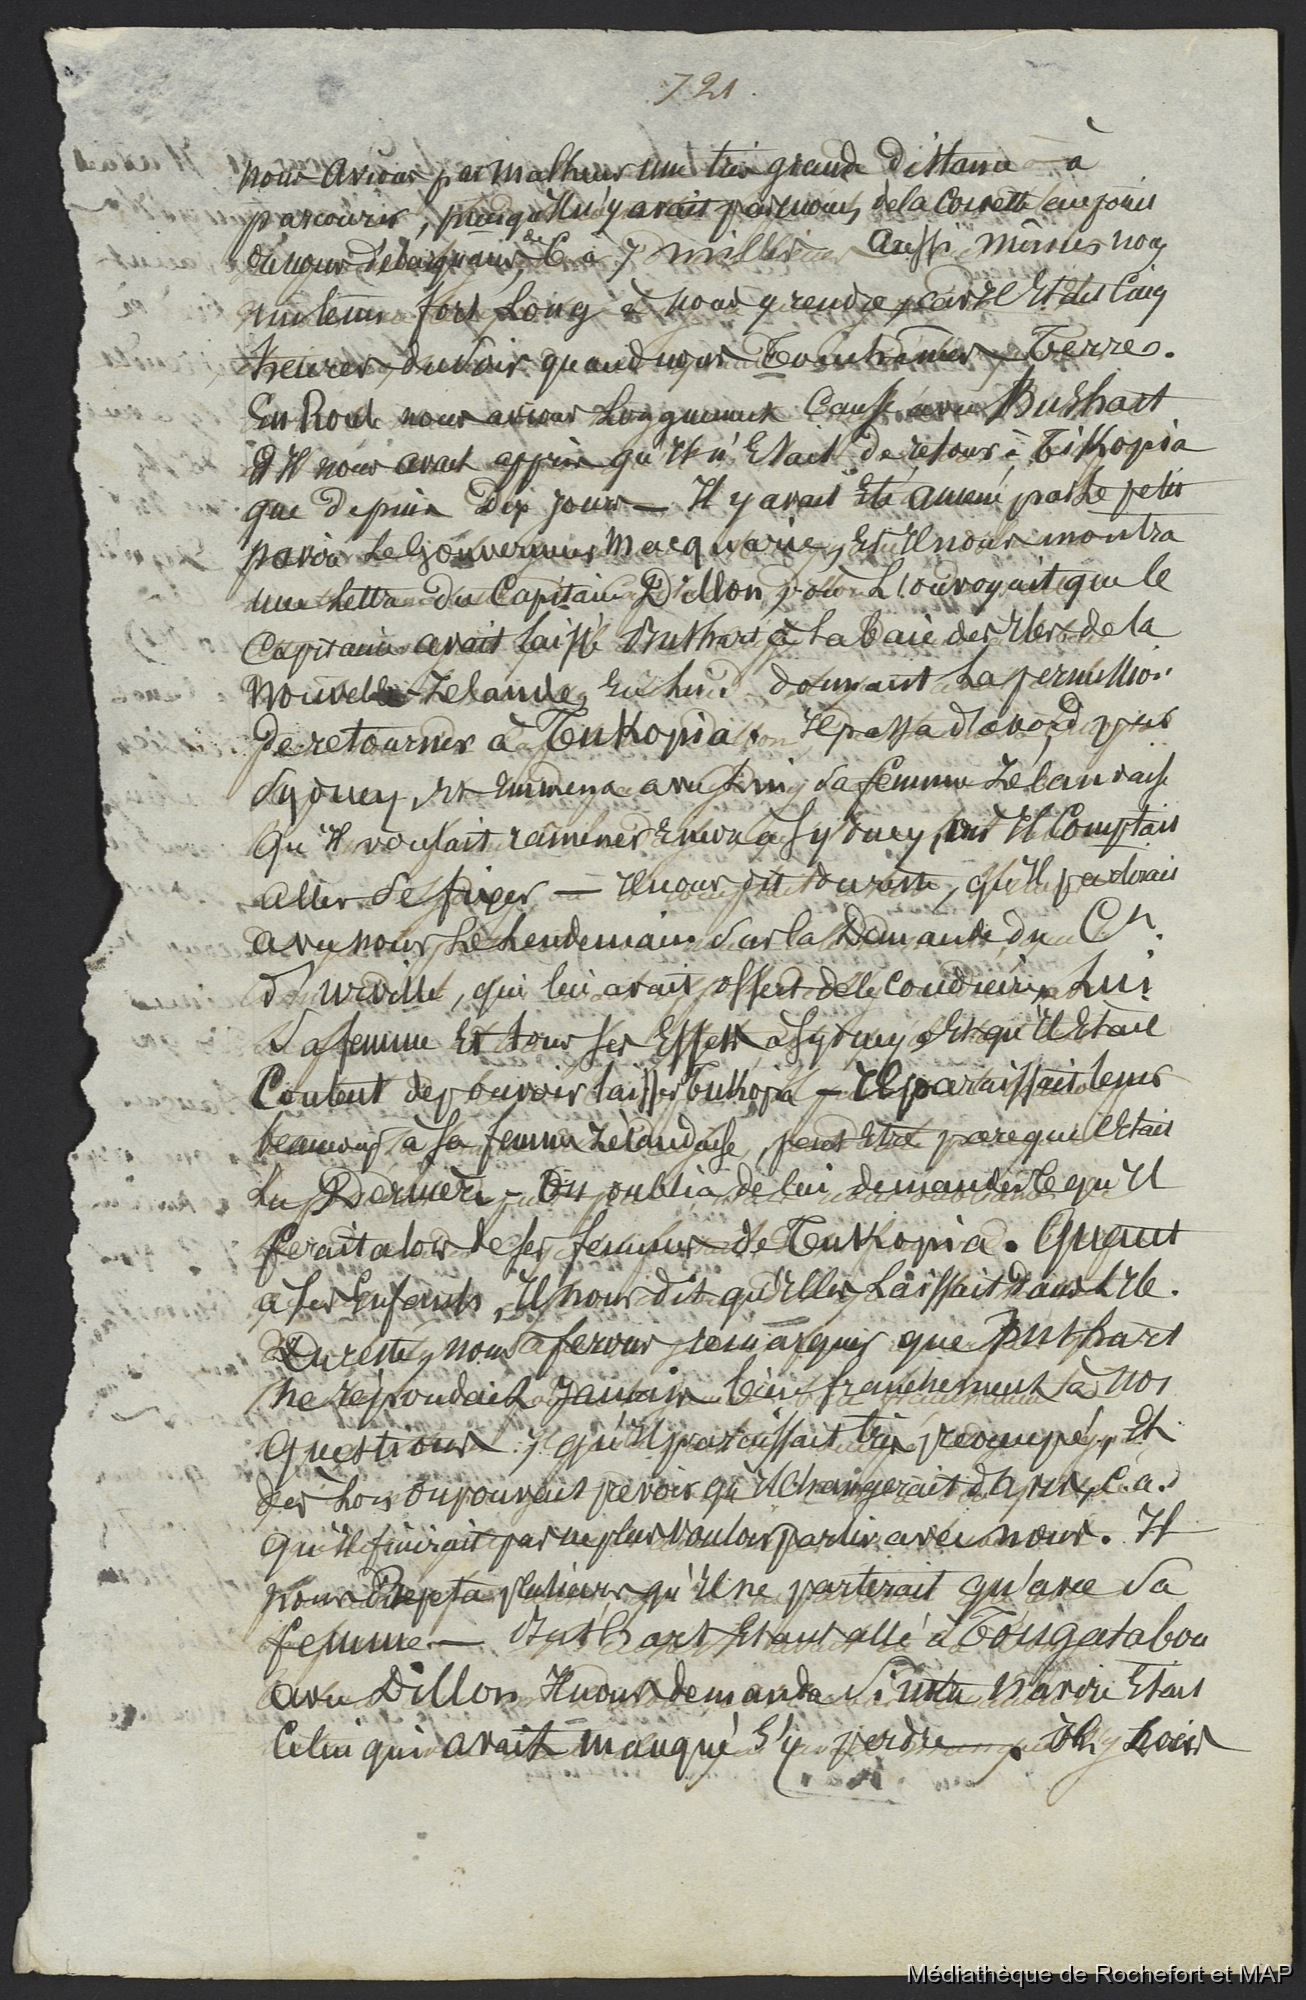 721.
nous avions par malheur une très grande distance à
parcourir, puisqu'il n'y avait pas moins, de la Corvette au point
où nous débarquâmes, de 6 à 7 milles Aussi mîmes nous
un tems fort long à nous y rendre, car il était Cinq
heures du soir quand nous Touchâmes Terre.
En Route nous avions longuement Causé avec Bushart
Il nous avait appris qu'il n'Etait de retour à Tikopia
que depuis Dix jours — Il y avait Eté amené par Le petit
navire Le Gouverneur Macquarie, Et Il nous montra
une lettre du Capitaine Dillon, où L'on voyait que le
Capitaine avait laissé Bushart à la baie des Iles de la
Nouvelle-Zélande, En lui donnant La permission
de retourner à Tukopia. Il passa d'abord par
Sydney, Et Emmena avec Lui sa femme Zélandaise
qu'Il voulait ramener Encore à Sydney, où Il Comptait
aller se fixer — Il nous dit du reste, qu'Il partirait
avec nous Le Lendemain sur la Demande du Cn.
d'Urville, qui lui avait offert de le conduire, Lui
Sa femme Et tous ses Effets à Sydney Et qu'Il Etait
Content de pouvoir laisser Tukopia — Il paraissait tenir
beaucoup à sa femme Zélandaise, peut Etre parcequ'elle Etait
La Dernière — On oublia de lui demander Ce qu'Il
ferait alors de ses femmes de Tukopia. Quant
à ses Enfants, Il nous dit qu'Il les Laissait dans L'Ile.
Du reste, nous observons remarquer que Bushart
ne répondait Jamais bien franchement à nos
Questions, qu'Il paraissait très préoccupé, Et
dès Lors on pouvait prévoir qu'Il Changerait d'avis, C.a.d
qu'Il finirait par ne plus vouloir partir avec nous. Il
nous Répéta plusieurs qu'Il ne partirait qu'avec Sa
femme — Bushart Etant allé à Tongatabou
avec Dillon Il nous demanda Si notre Navire Etait
Celui qui avait manqué s'y perdre